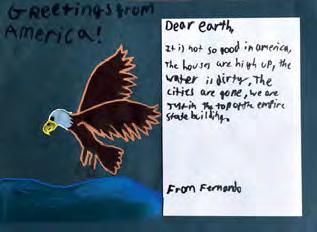 Greetings from
America!
Dear earth,
It is not so good in america,
The houses are high up, the
water is dirty. The
cities are gone, we are
in the top of the empire
state building.
From Fernando